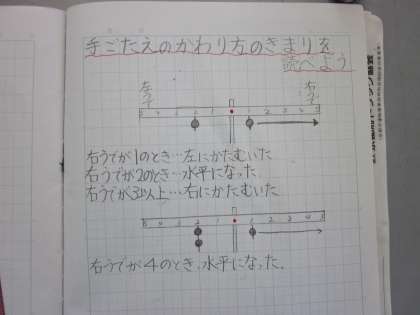 手ごたえのかわり方のきまりを
調べよう
左うで 右うで
5 4 3 2 1 1 2 3 4 5
右うでが1のとき…左にかたむいた
右うでが2のとき…水平になった
右うでが3以上…右にかたむいた
5 4 3 2 1 1 2 3 4 5
右うでが4のとき、水平になった。